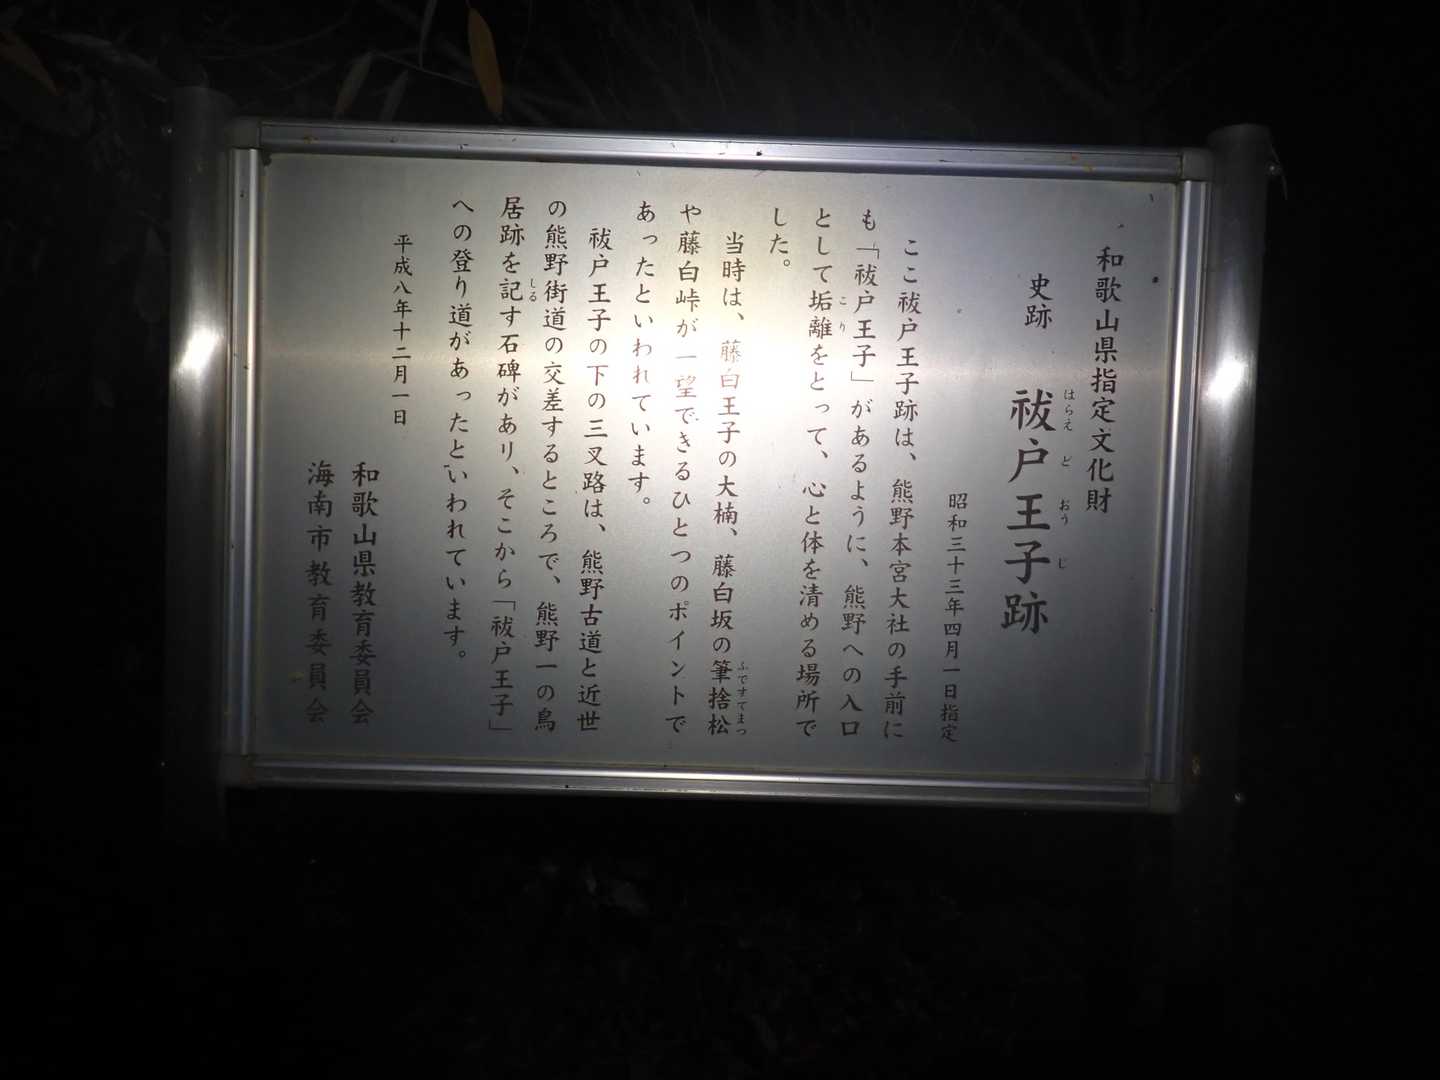 和歌山県指定文化財
史跡 祓戸王子跡
はらえ ど おう じ
昭和三十三年四月一日指定
ここ祓戸王子跡は、熊野本宮大社の手前に
も「祓戸王子」があるように、熊野への入口
として垢離をとって、心と体を清める場所で
こり
した。
当時は、藤白王子の大楠、藤白坂の筆捨松
ふですてまつ
や藤白峠が一望できるひとつのポイントで
あったといわれています。
祓戸王子の下の三叉路は、熊野古道と近世
の熊野街道の交差するところで、熊野一の鳥
居跡を記す石碑があり、そこから「祓戸王子」
しる
への登り道があったといわれています。
平成八年十二月一日
和歌山県教育委員会
海南市教育委員会